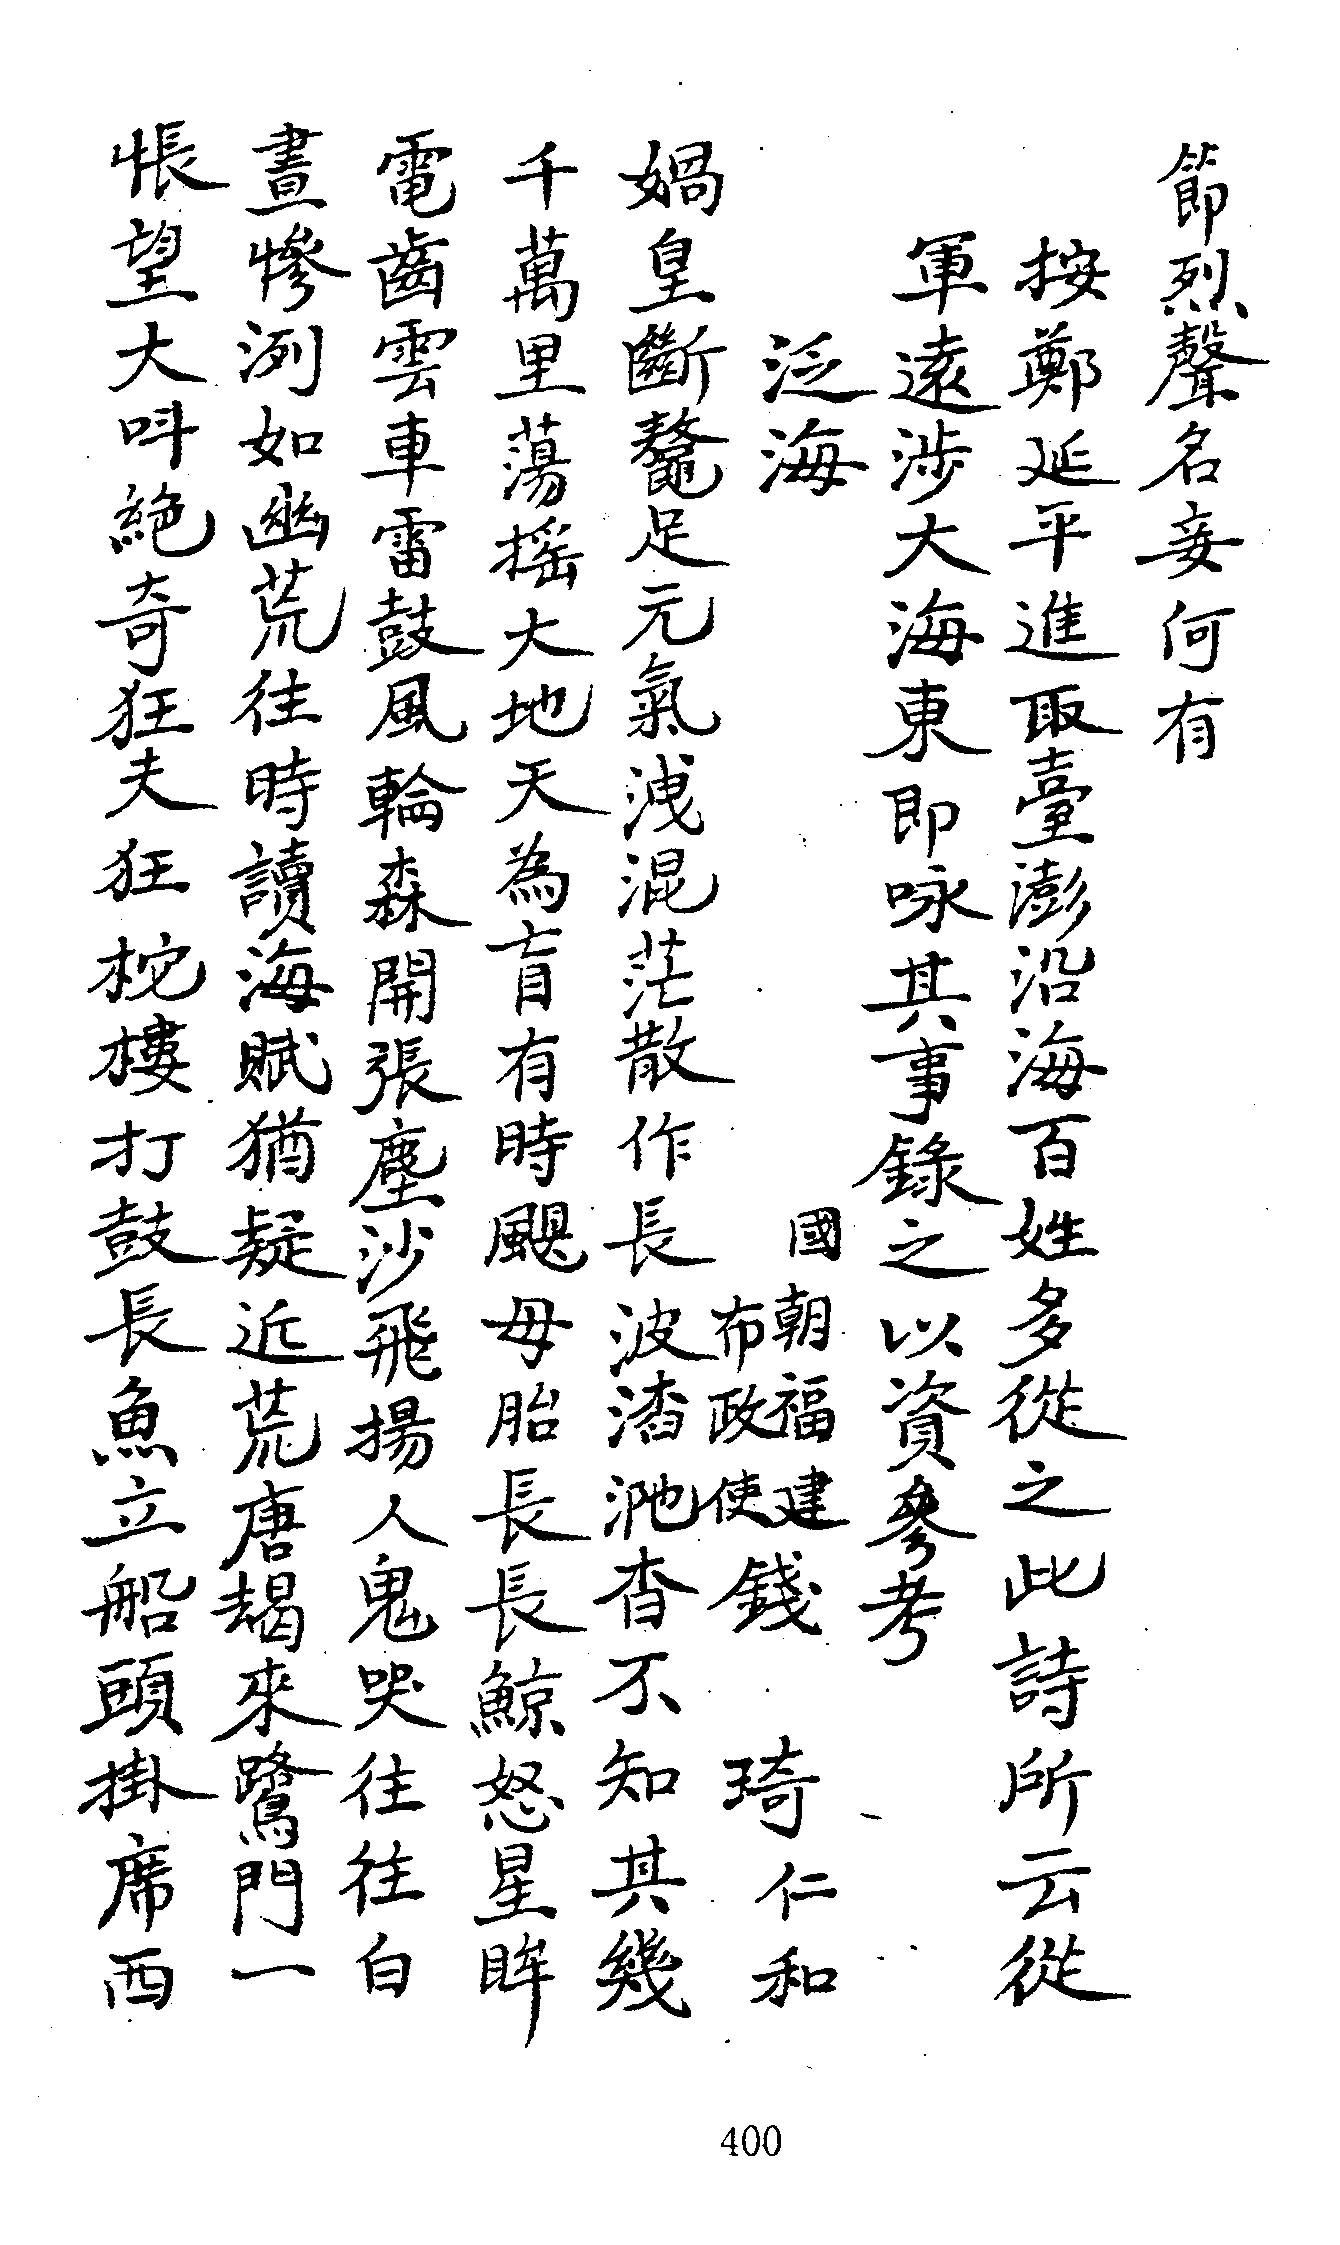 節烈聲名妾何有
按鄭延平進取臺澎沿海百姓多從之此詩所云從
軍遠涉大海東即咏其事錄之以資參考
泛海
國朝福建
布政使
錢琦仁和
媧皇斷鼇足元氣洩混茫散作長波濤㴰杳不知其幾
千萬里蕩搖大地天為盲有時颶母胎長長鯨怒星眸
電齒雲車雷鼓風輪森開張塵沙飛揚人鬼哭往往白
晝慘洌如幽荒往時讀海賦猶疑近荒唐朅來鷺門一
悵望大呌絕奇狂夫狂柁樓打鼓長魚立船頭掛席西
400